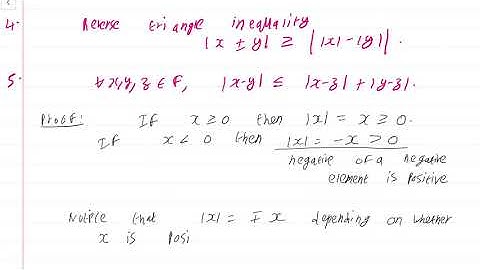 4. Reverse triangle inequality
|x ± y| ≥ ||x| - |y||.
5. ∀x,y,z ∈ F, |x-y| ≤ |x-z| + |y-z|.
Proof: If x ≥ 0 then |x| = x ≥ 0.
If x < 0 then |x| = -x > 0
negative of a negative
element is positive
Notice that |x| = ∓ x depending on whether
x is posi